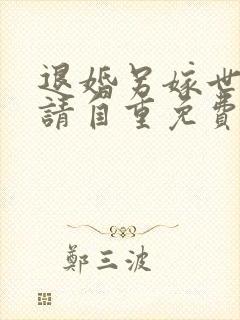 退婚另嫁世
請自重免費
鄭三波